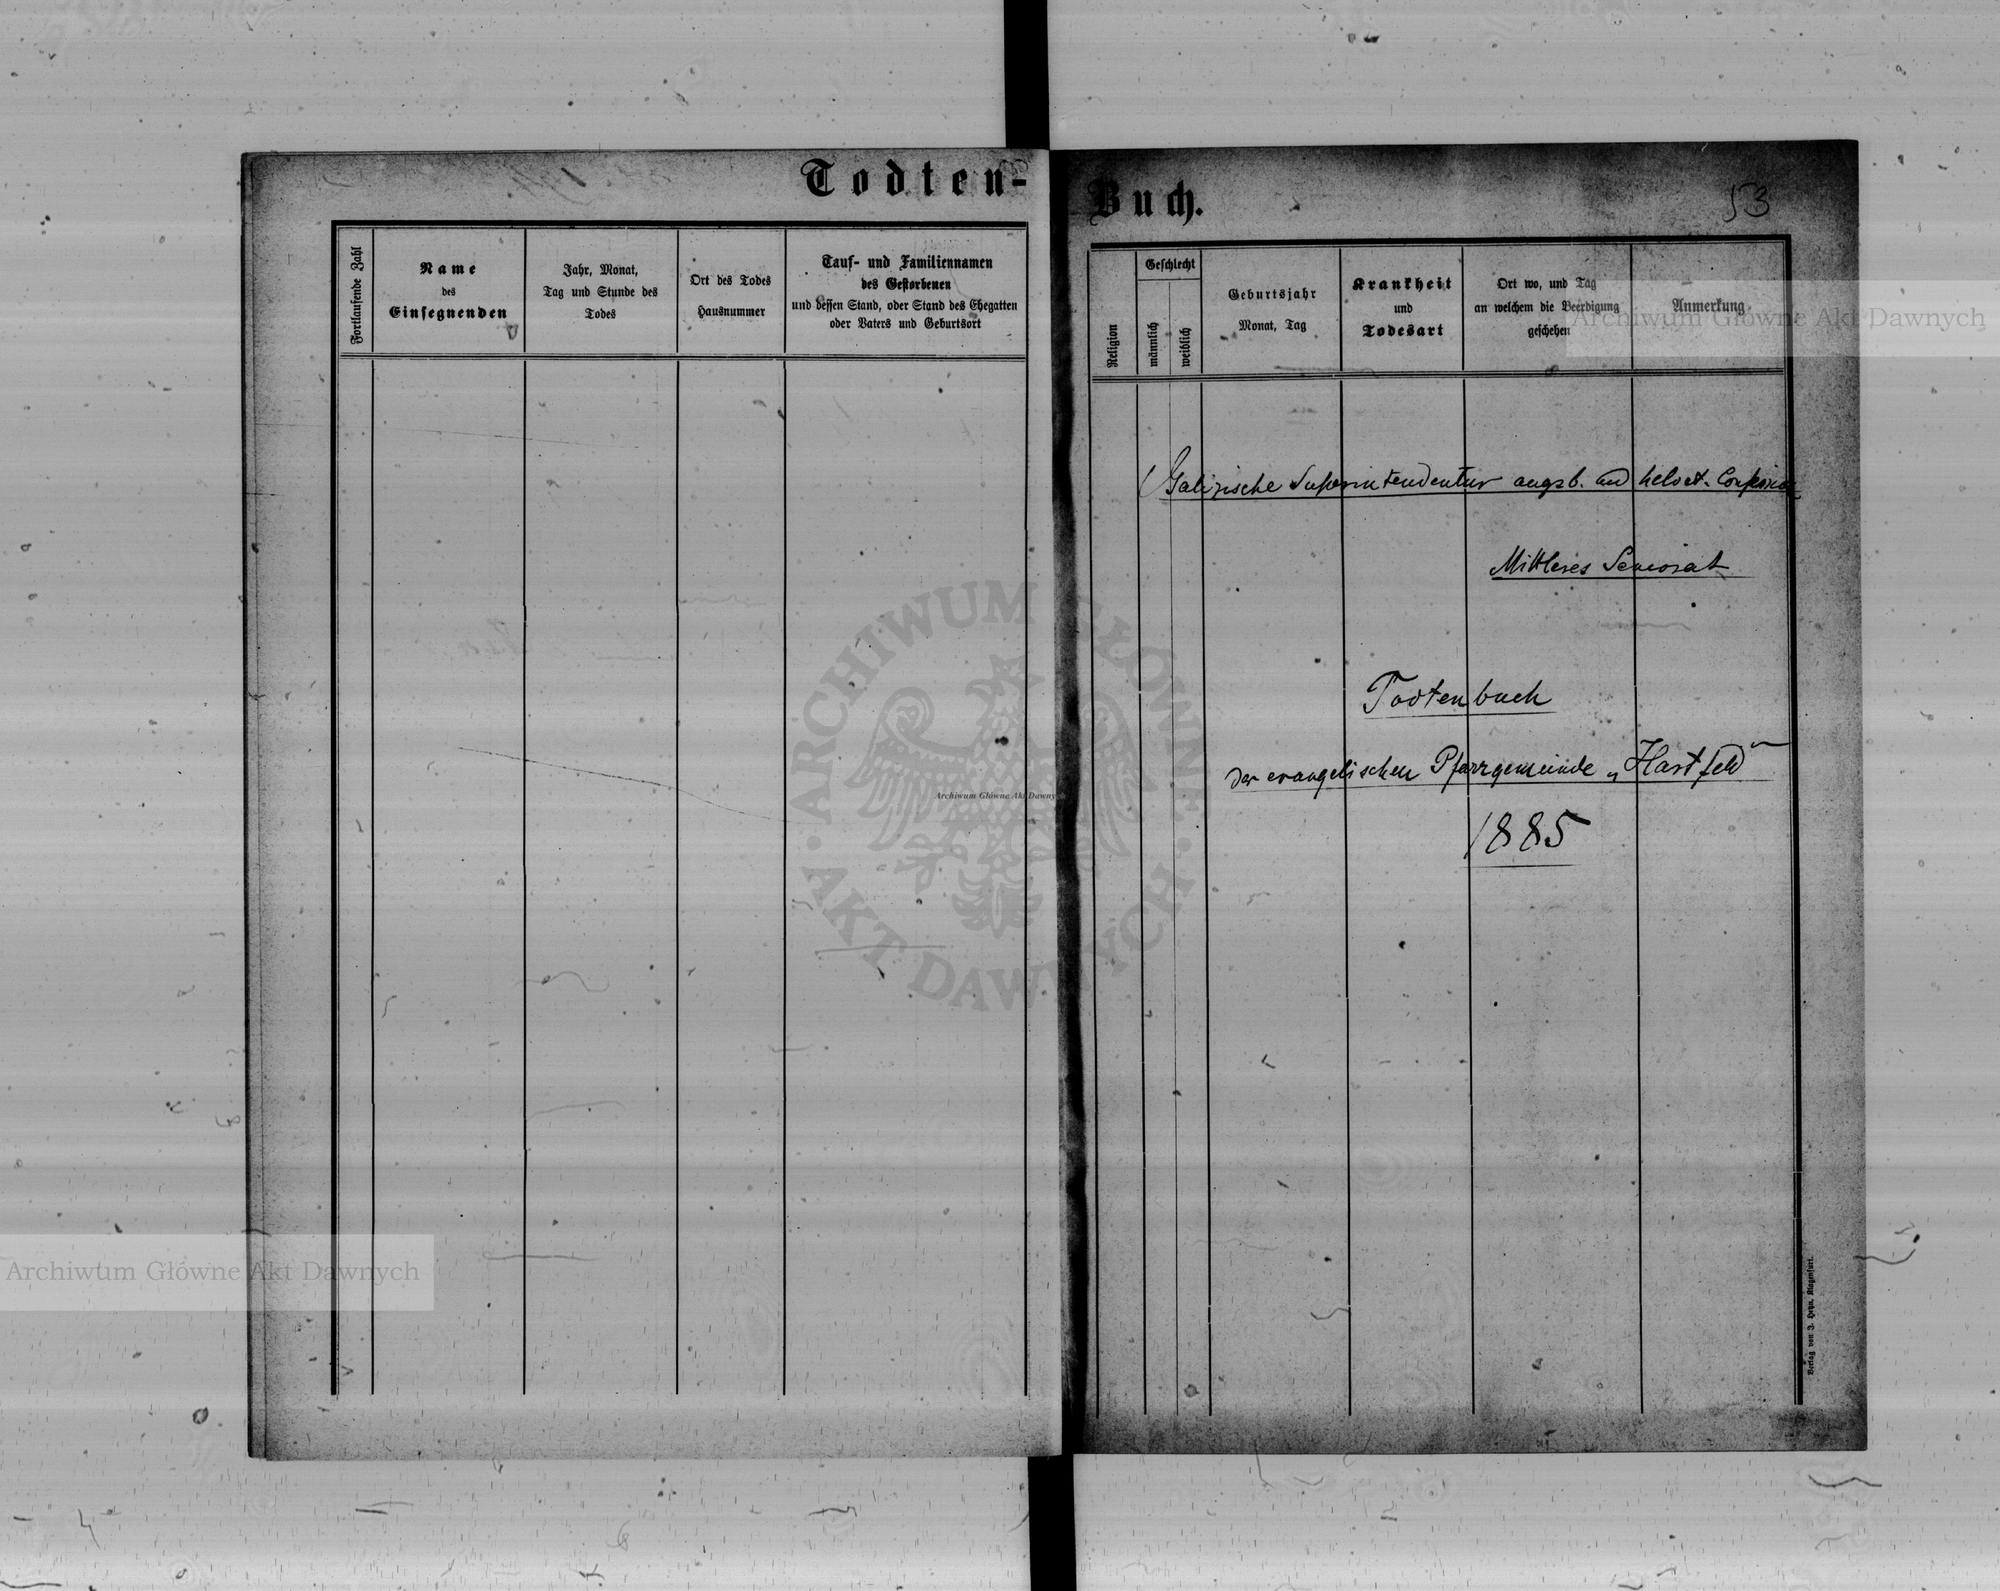 Todten-
Fortlaufende Zahl
Name
des
Einsegnenden
Jahr, Monat,
Tag und Stunde des
Todes
Ort des Todes
Hausnummer
Tauf- und Familiennamen
des Gestorbenen
und dessen Stand, oder Stand des Ehegatten
oder Vaters und Geburtsort
Buch.
53
Religion
Geschlecht
männlich
weiblich
Geburtsjahr
Monat, Tag
Krankheit
und
Todesart
Ort wo, und Tag
an welchem die Beerdigung
geschehen
Anmerkung
Galizische Superintendentur augsb. und helvet. Confession
Mittleres Seniorat
Todtenbuch
der evangelischen Pfarrgemeinde „Hartfeld“
1885
Verlag von J. Heyn, Klagenfurt.
Archiwum Główne Akt Dawnych
ARCHIWUM GŁÓWNE · AKT DAWNYCH ·
Archiwum Główne Akt Dawnych
Archiwum Główne Akt Dawnych